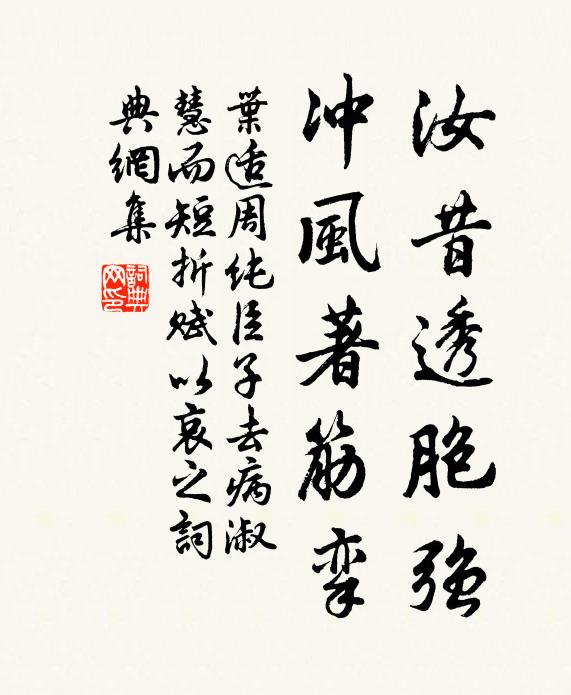 汝昔透胞強
冲風著筋挛
葉适周純臣子去病淑
慧而短折赋以哀之詞
典網集
詞典网印